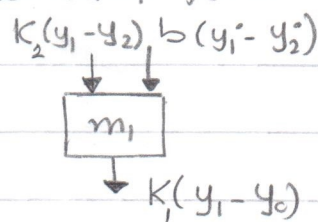 K₂(y₁-y₂) b(y₁˙- y₂˙)
m₁
K₁(y₁-y₀)